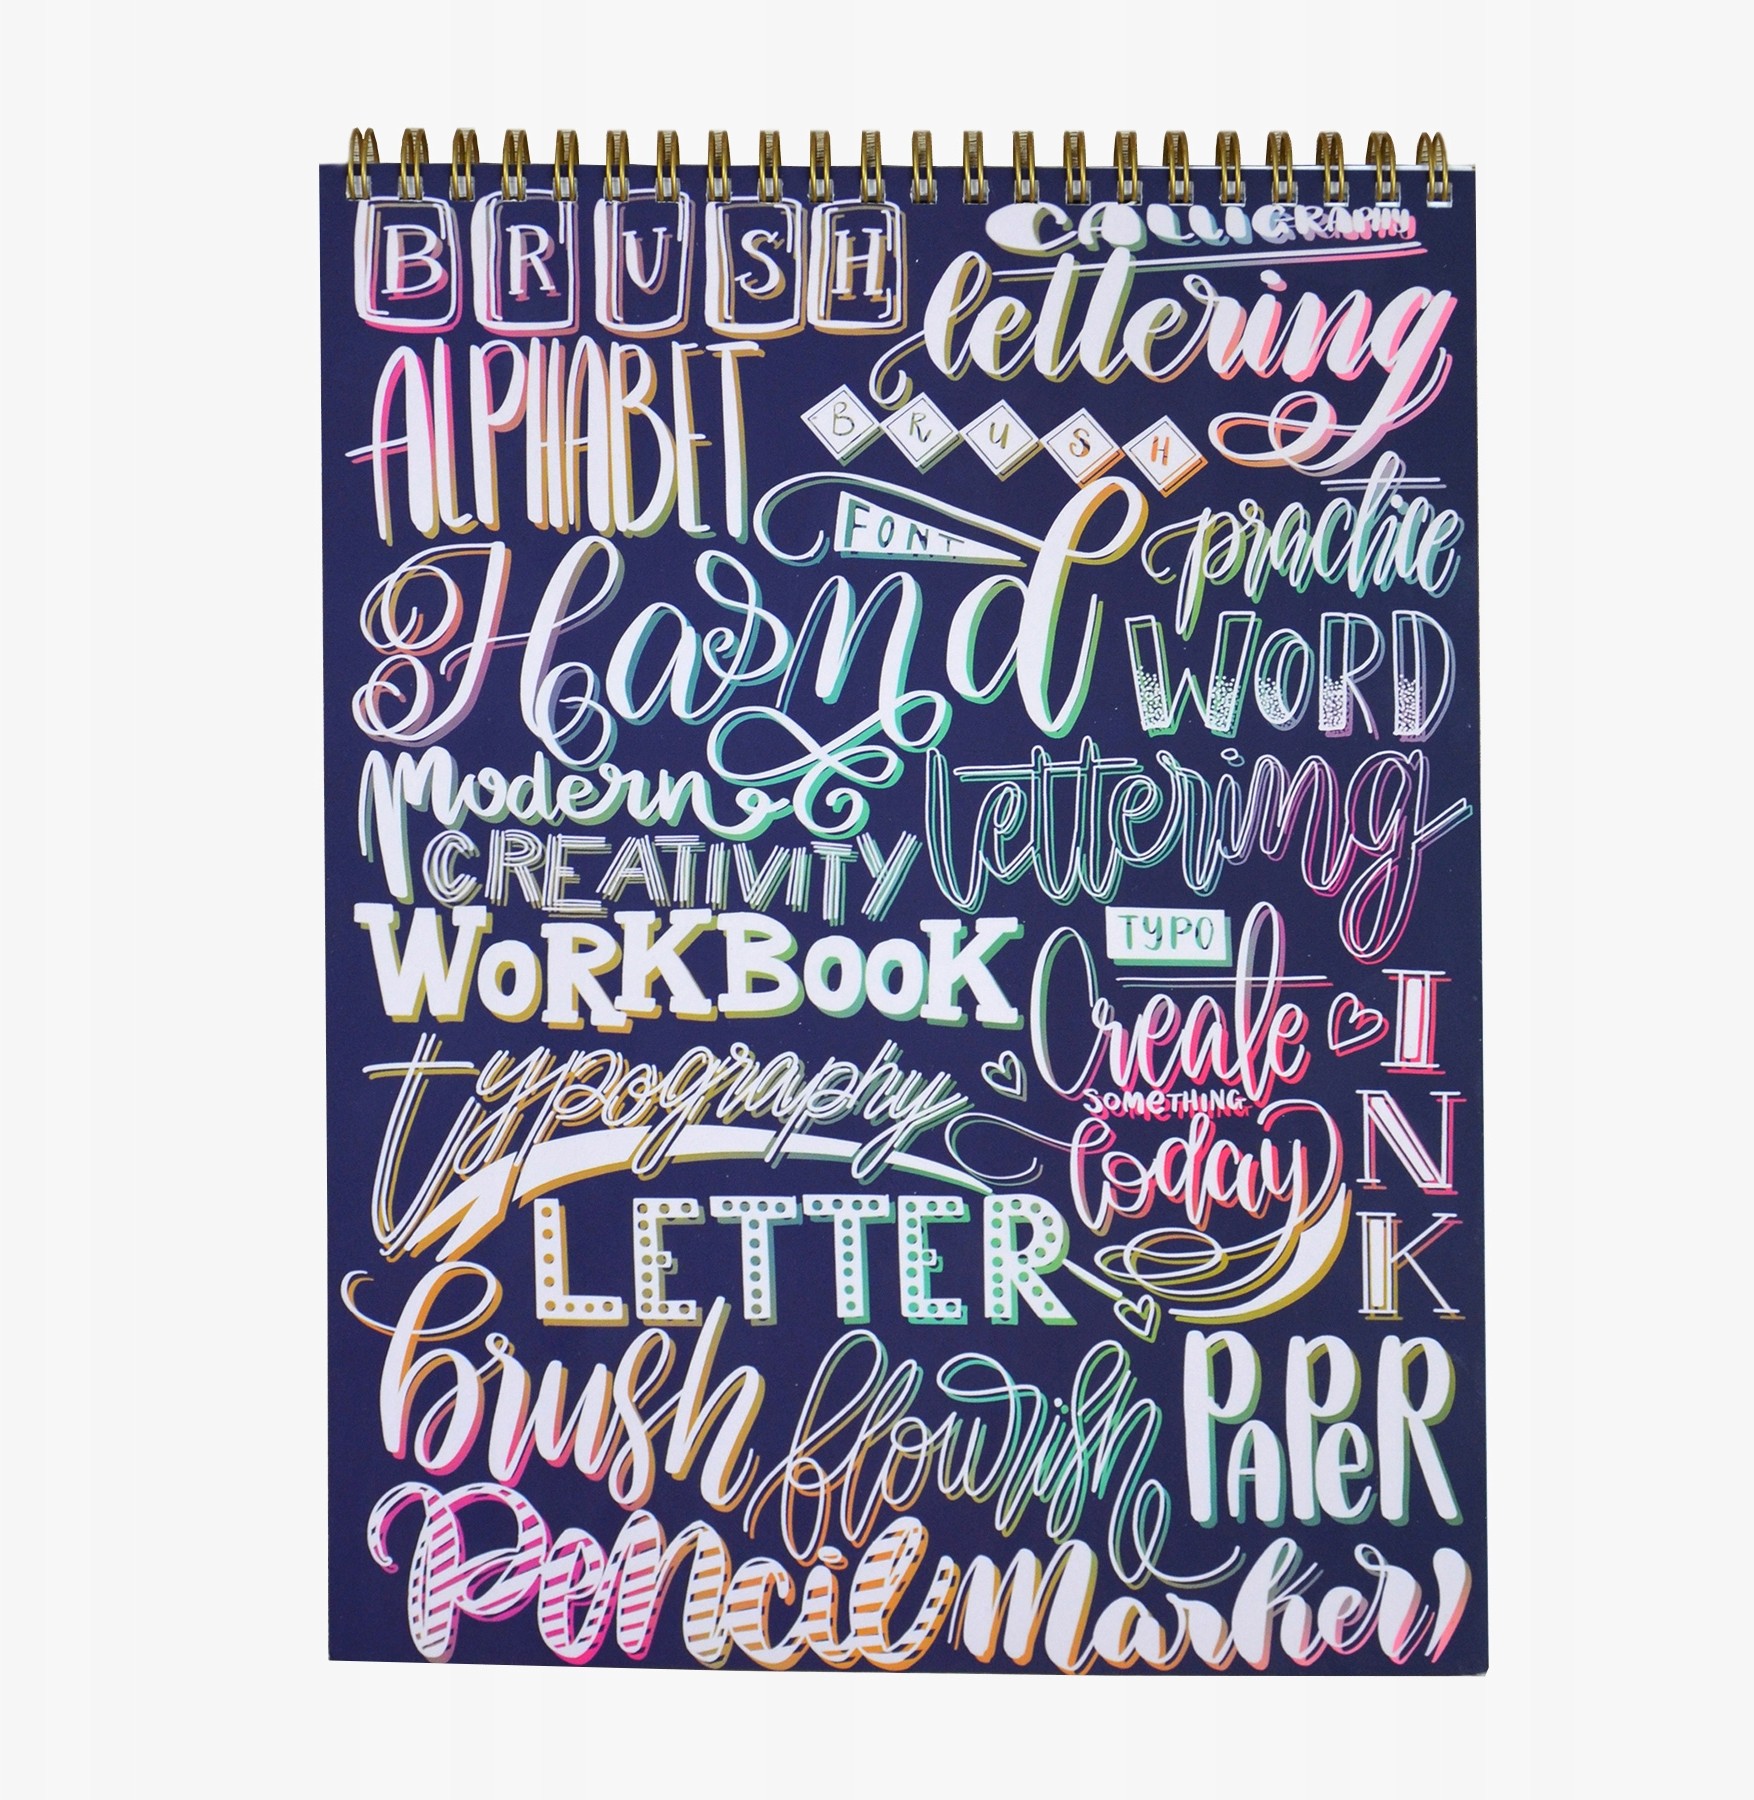 BRUSH
CALLIGRAPHY
lettering
ALPHABET
BRUSH
FONT
practice
Hand
WORD
modern
lettering
CREATIVITY
WORKBOOK
TYPO
Create
something
today
INK
typography
LETTER
brush
flourish
PAPeR
Pencil
marker